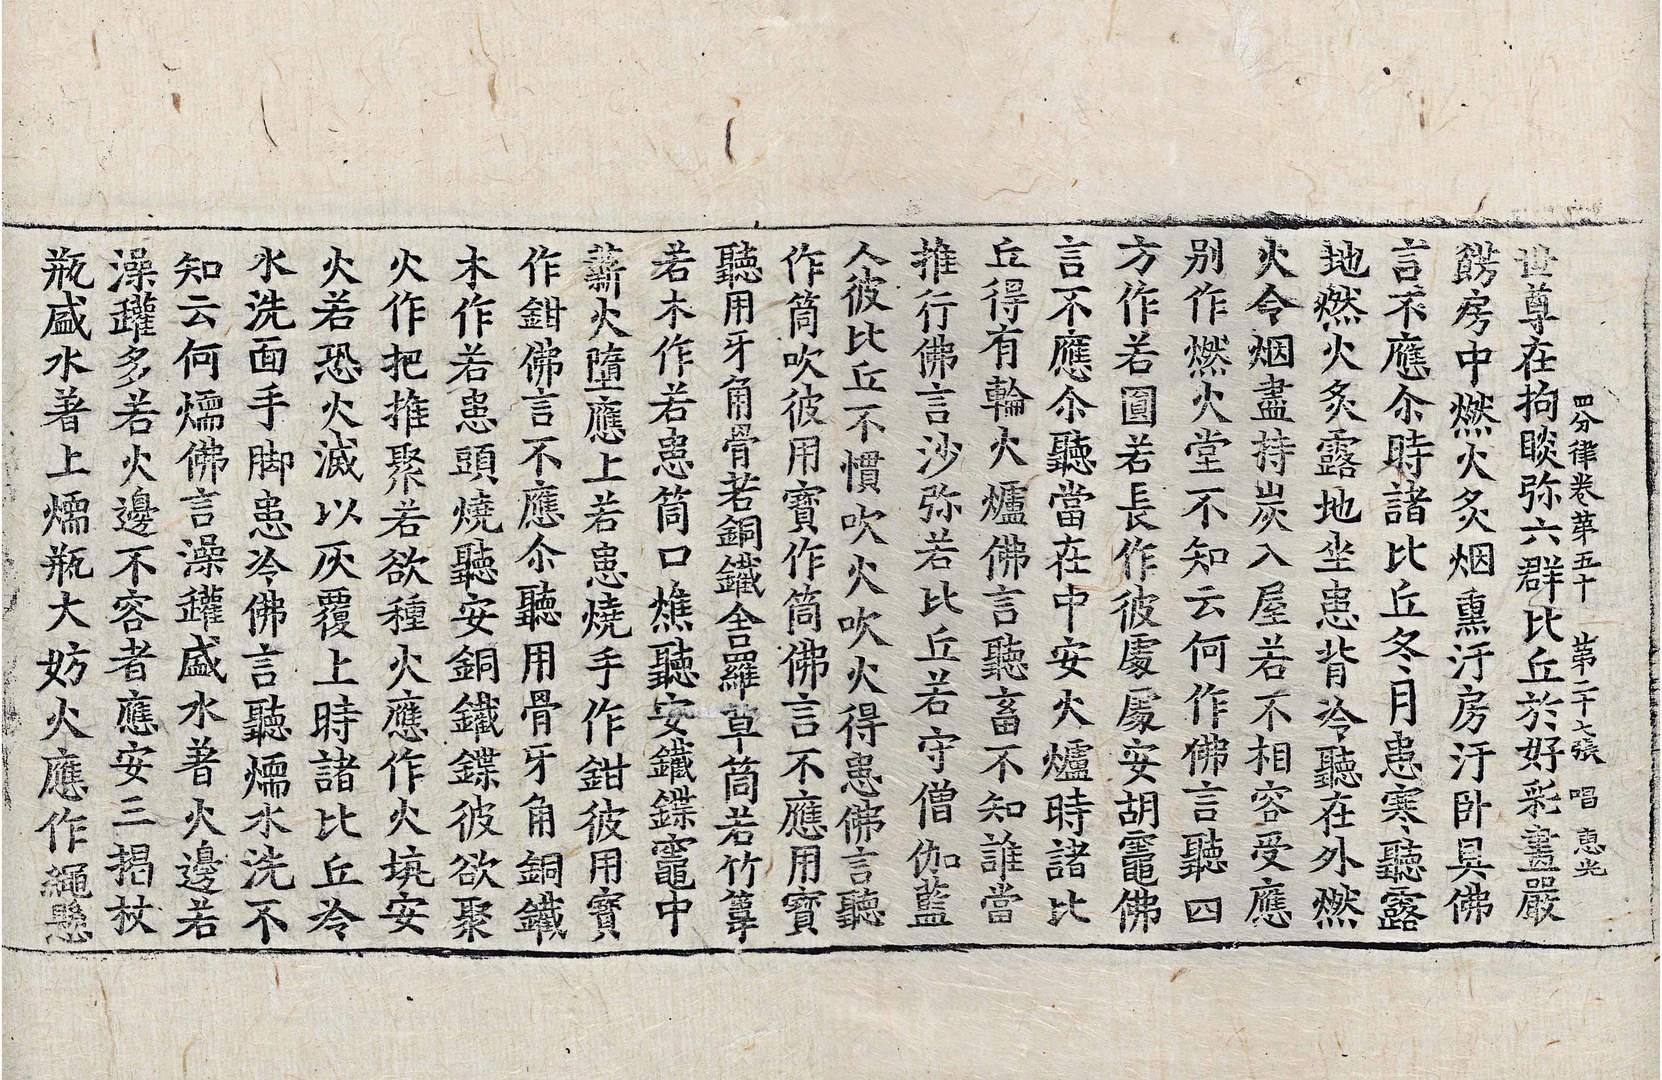 四分律卷苐五十 苐二十七張 唱 惠光
世尊在拘睒弥六群比丘於好彩畫嚴
餝房中燃火炙烟熏汙房汙卧具佛
言不應尒時諸比丘冬月患寒聽露
地燃火炙露地坐患背冷聽在外燃
火令烟盡持炭入屋若不相容受應
別作燃火堂不知云何作佛言聽四
方作若圓若長作彼處處安胡竈佛
言不應尒聽當在中安火爐時諸比
丘得有輪火爐佛言聽畜不知誰當
推行佛言沙弥若比丘若守僧伽藍
人彼比丘不慣吹火吹火得患佛言聽
作筒吹彼用寶作筒佛言不應用寶
聽用牙角骨若銅鐵舍羅草筒若竹葦
若木作若患筒口燋聽安鐵鍱竈中
薪火墮應上若患燒手作鉗彼用寶
作鉗佛言不應尒聽用骨牙角銅鐵
木作若患頭燒聽安銅鐵鍱彼欲聚
火作把推聚若欲種火應作火坑安
火若恐火滅以灰覆上時諸比丘冷
水洗面手脚患冷佛言聽煗水洗不
知云何煗佛言澡罐盛水著火邊若
澡罐多若火邊不容者應安三揭杖
瓶盛水著上煗瓶大妨火應作繩懸